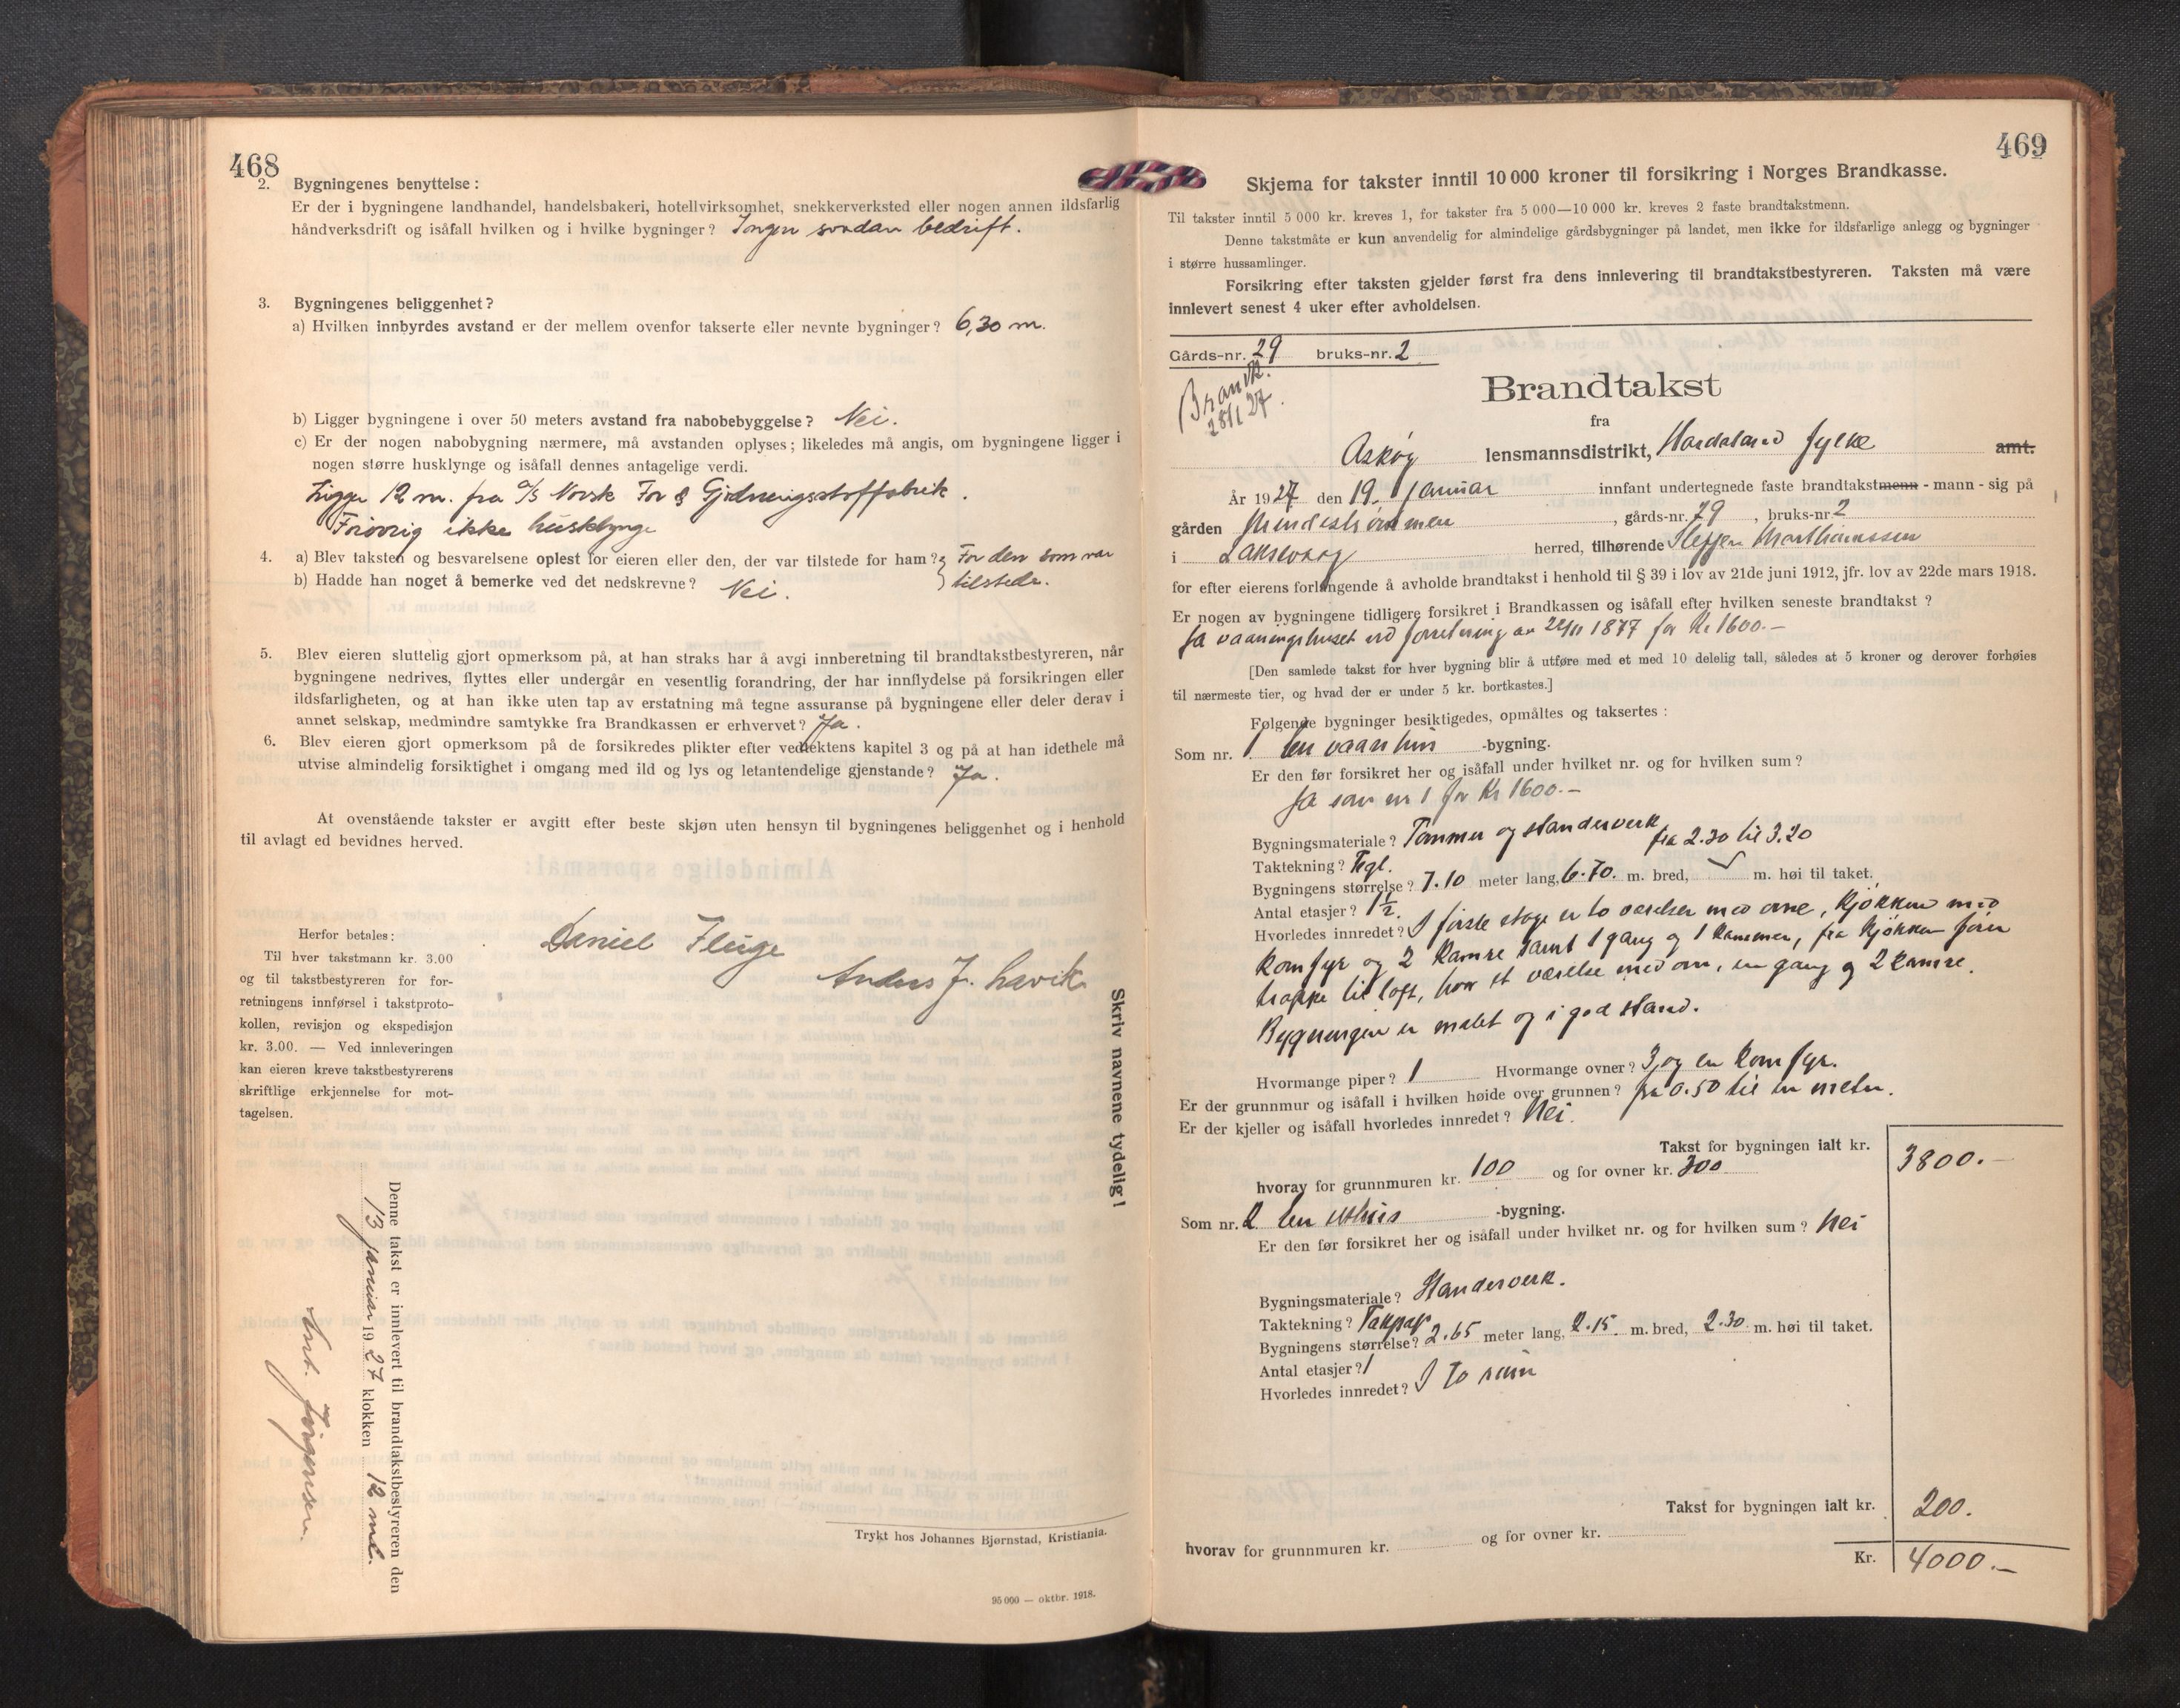 468
2. Bygningenes benyttelse:
Er der i bygningene landhandel, handelsbakeri, hotellvirksomhet, snekkerverksted eller nogen annen ildsfarlig
håndverksdrift og isåfall hvilken og i hvilke bygninger? Ingen saadan bedrift.
3. Bygningenes beliggenhet?
a) Hvilken innbyrdes avstand er der mellem ovenfor takserte eller nevnte bygninger? 6,30 m.
b) Ligger bygningene i over 50 meters avstand fra nabobebyggelse? Nei.
c) Er der nogen nabobygning nærmere, må avstanden oplyses; likeledes må angis, om bygningene ligger i
nogen større husklynge og isåfall dennes antagelige verdi.
Ligger 12 m. fra A/S Norsk For & Gjødningsstoffabrik.
Forøvrig ikke husklynge
4. a) Blev taksten og besvarelsene oplest for eieren eller den, der var tilstede for ham? } For den som var
b) Hadde han noget å bemerke ved det nedskrevne? Nei. tilstede.
5. Blev eieren sluttelig gjort opmerksom på, at han straks har å avgi innberetning til brandtakstbestyreren, når
bygningene nedrives, flyttes eller undergår en vesentlig forandring, der har innflydelse på forsikringen eller
ildsfarligheten, og at han ikke uten tap av erstatning må tegne assuranse på bygningene eller deler derav i
annet selskap, medmindre samtykke fra Brandkassen er erhvervet? Ja.
6. Blev eieren gjort opmerksom på de forsikredes plikter efter vedtektens kapitel 3 og på at han idethele må
utvise almindelig forsiktighet i omgang med ild og lys og letantendelige gjenstande? Ja.
At ovenstående takster er avgitt efter beste skjøn uten hensyn til bygningenes beliggenhet og i henhold
til avlagt ed bevidnes herved.
Daniel Fluge
Anders J. Lavik
Herfor betales:
Til hver takstmann kr. 3.00
og til takstbestyreren for for-
retningens innførsel i takstproto-
kollen, revisjon og ekspedisjon
kr. 3.00. — Ved innleveringen
kan eieren kreve takstbestyrerens
skriftlige erkjennelse for mot-
tagelsen.
Skriv navnene tydelig!
Denne takst er innlevert til brandtakstbestyreren den
13 januar 1927 klokken 12 md.
Jørgensen.
Trykt hos Johannes Bjørnstad, Kristiania.
95 000 — oktbr. 1918.
469
Skjema for takster inntil 10 000 kroner til forsikring i Norges Brandkasse.
Til takster inntil 5 000 kr. kreves 1, for takster fra 5 000—10 000 kr. kreves 2 faste brandtakstmenn.
Denne takstmåte er kun anvendelig for almindelige gårdsbygninger på landet, men ikke for ildsfarlige anlegg og bygninger
i større hussamlinger.
Forsikring efter taksten gjelder først fra dens innlevering til brandtakstbestyreren. Taksten må være
innlevert senest 4 uker efter avholdelsen.
Gårds-nr. 29 bruks-nr. 2
Brandk.
28/1 27.
Brandtakst
fra
Askøy lensmannsdistrikt, Hordaland fylke amt.
År 1927 den 19. januar innfant undertegnede faste brandtakstmenn - mann - sig på
gården , gårds-nr. 29, bruks-nr. 2
i Laksevaag herred, tilhørende Steffen Marthinussen
for efter eierens forlangende å avholde brandtakst i henhold til § 39 i lov av 21de juni 1912, jfr. lov av 22de mars 1918.
Er nogen av bygningene tidligere forsikret i Brandkassen og isåfall efter hvilken seneste brandtakst?
Ja vaaningshuset ved forretning av 22/11 1877 for Kr 1600.-
[Den samlede takst for hver bygning blir å utføre med et med 10 delelig tall, således at 5 kroner og derover forhøies
til nærmeste tier, og hvad der er under 5 kr. bortkastes.]
Følgende bygninger besiktigedes, opmåltes og taksertes:
Som nr. 1 en vaanhus -bygning.
Er den før forsikret her og isåfall under hvilket nr. og for hvilken sum?
Ja som nr 1 for Kr 1600.-
Bygningsmateriale? Tømmer og standerverk
Taktekning? Tegl. fra 2.30 til 3.20
Bygningens størrelse? 7.10 meter lang, 6.70. m. bred, m. høi til taket.
Antal etasjer? 1 1/2.
Hvorledes innredet? I første etage er to værelser med ovne, kjøkken med
komfyr og 2 kamre samt 1 gang og 1 kammer, fra kjøkken fører
trappe til loft, hvor et værelse med ovn, en gang og 2 kamre.
Bygningen er malet og i god stand.
Hvormange piper? 1 Hvormange ovner? 3 og en komfyr.
Er der grunnmur og isåfall i hvilken høide over grunnen? fra 0.50 til en meter.
Er der kjeller og isåfall hvorledes innredet? Nei.
Takst for bygningen ialt kr. 3800.-
hvorav for grunnmuren kr. 100 og for ovner kr. 300
Som nr. 2 en uthus -bygning.
Er den før forsikret her og isåfall under hvilket nr. og for hvilken sum? Nei
Bygningsmateriale? Standerverk.
Taktekning? Takpap
Bygningens størrelse? 2.65 meter lang, 2.15. m. bred, 2.30 m. høi til taket.
Antal etasjer? 1
Hvorledes innredet? I to rum
Takst for bygningen ialt kr. 200.
hvorav for grunnmuren kr. og for ovner kr.
Kr. 4000.-